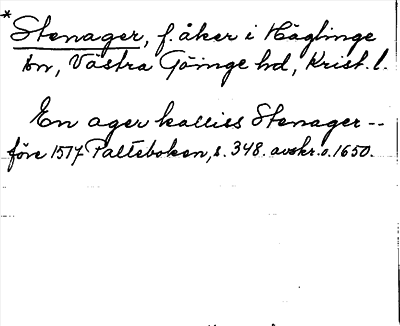 * Stenager, f. åker i Häglinge
sn, Västra Göinge hd, Krist. l.
En ager kalliss Stenager --
före 1517 Palteboken, s. 348. avskr. o. 1650.